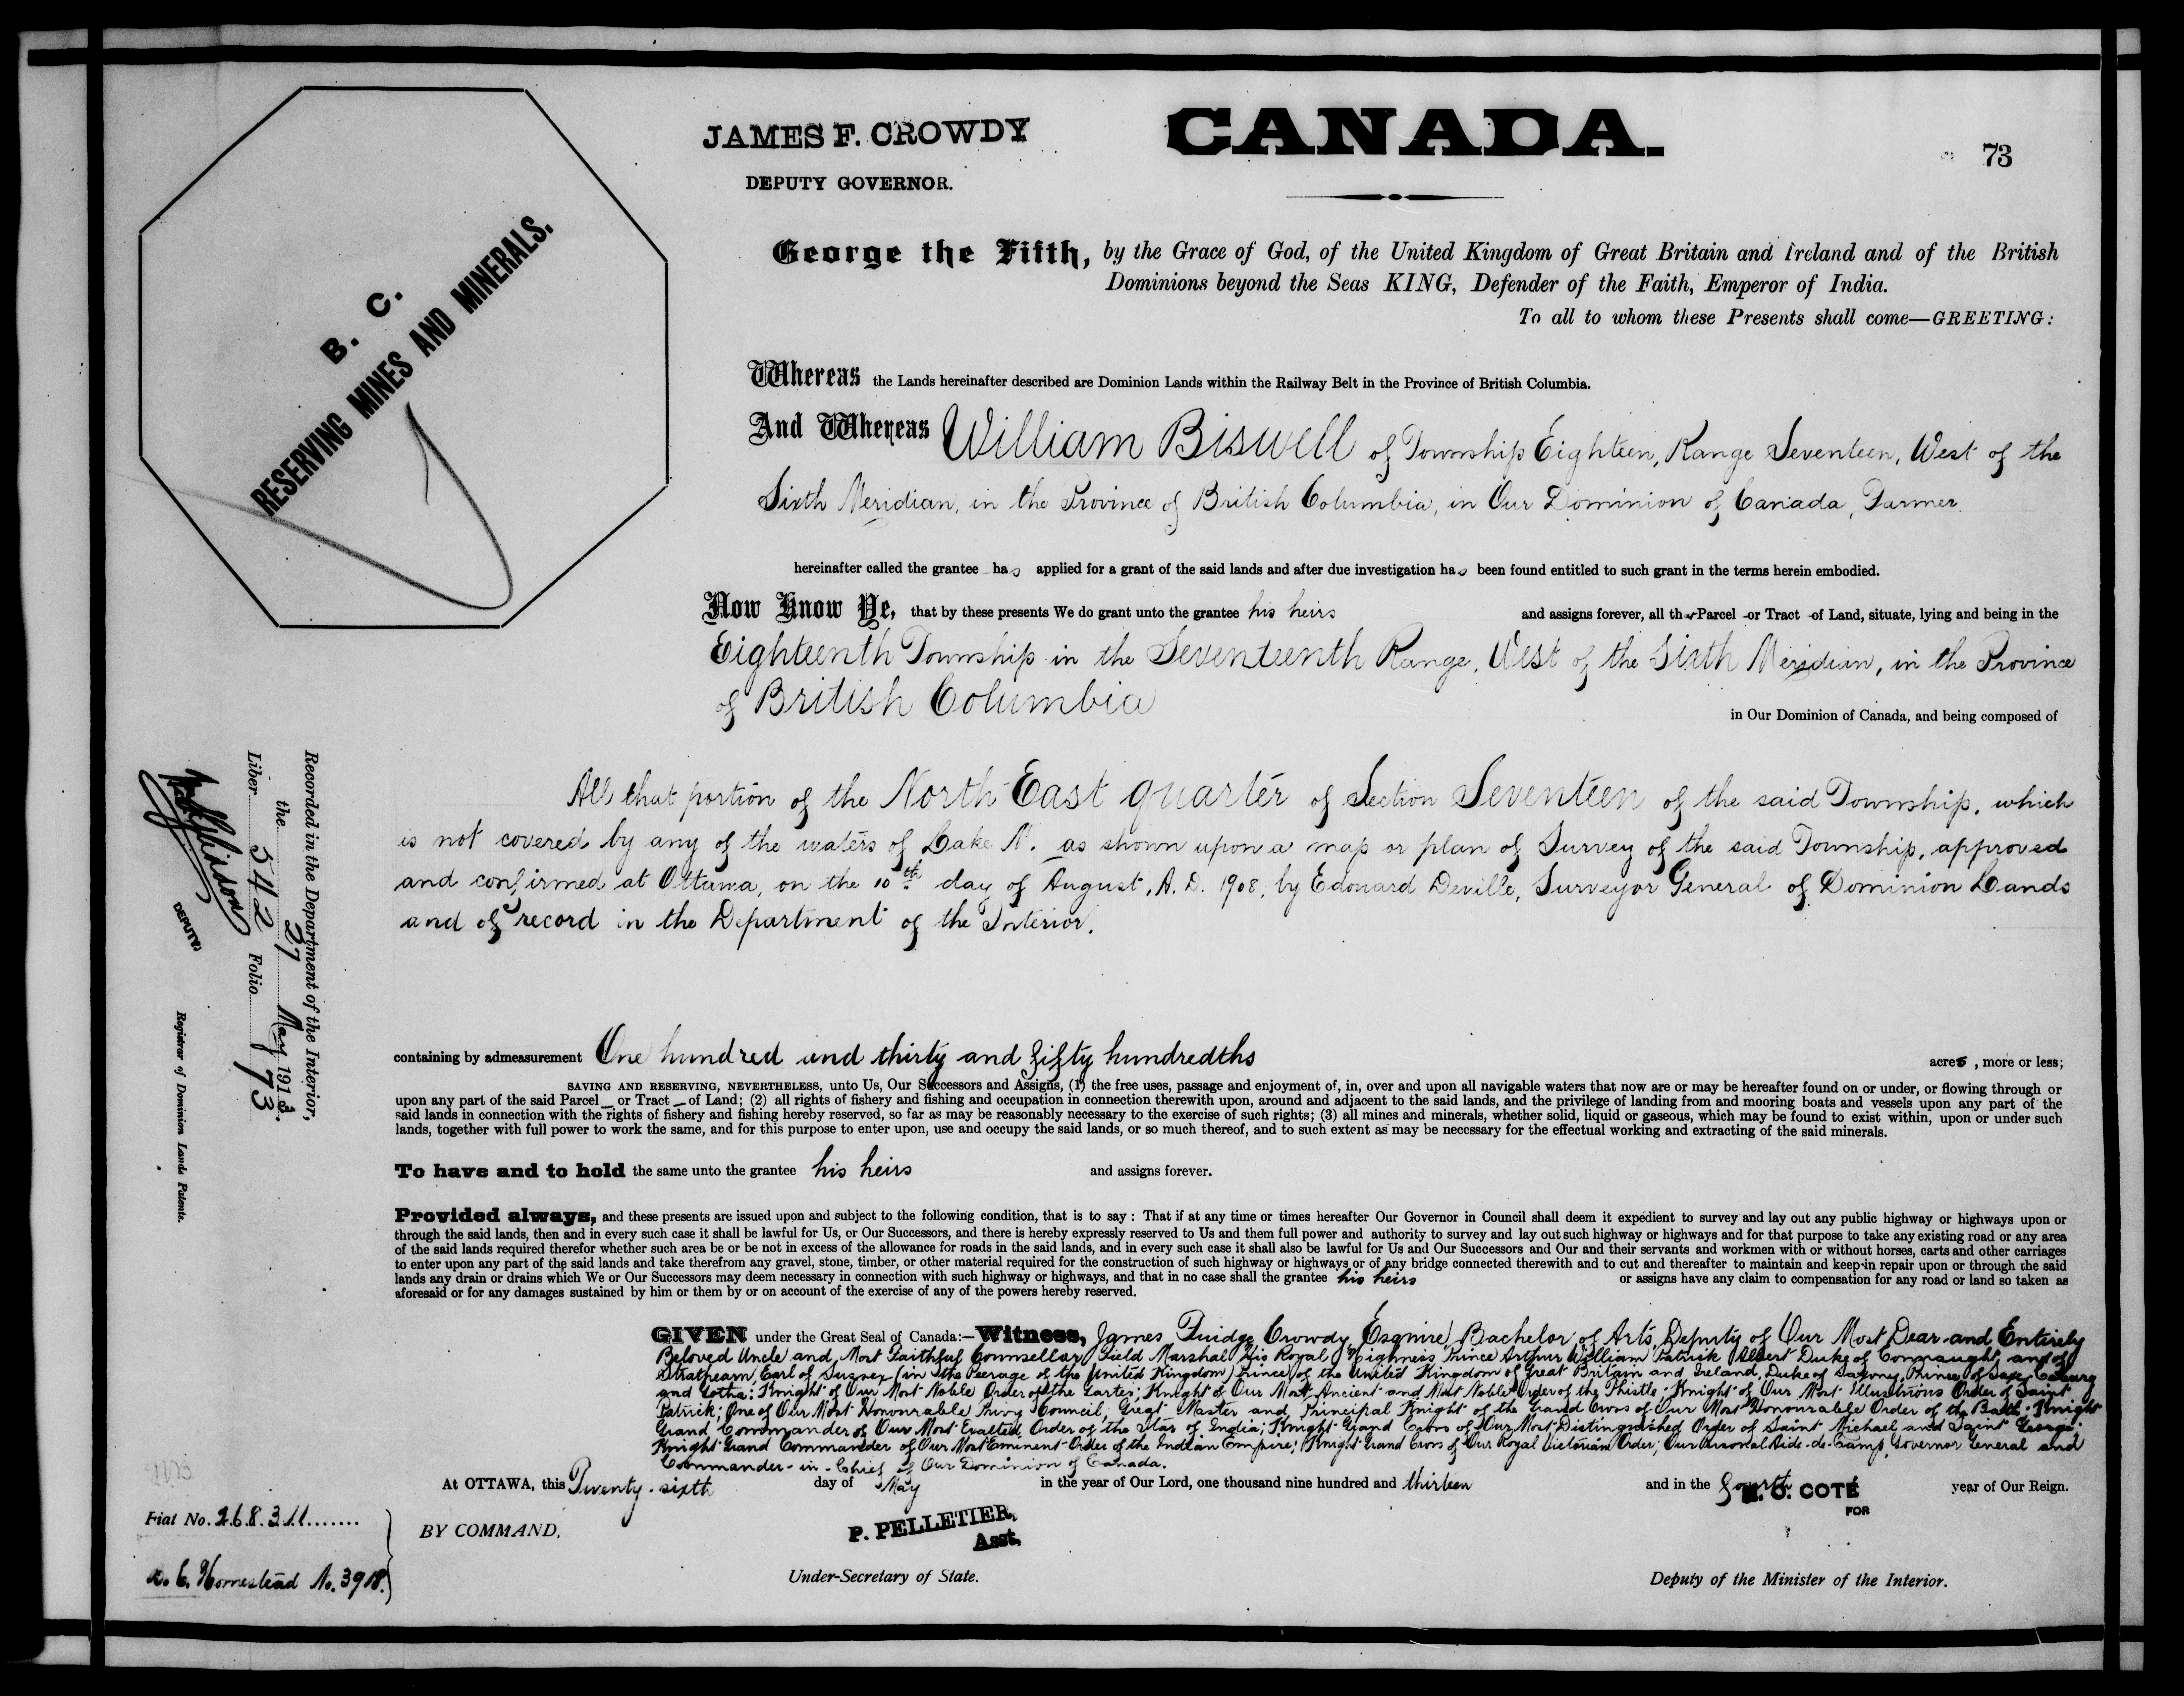 JAMES F. CROWDY
DEPUTY GOVERNOR.
CANADA.
73
B. C.
RESERVING MINES AND MINERALS.
George the Fifth, by the Grace of God, of the United Kingdom of Great Britain and Ireland and of the British
Dominions beyond the Seas KING, Defender of the Faith, Emperor of India.
To all to whom these Presents shall come—GREETING:
Whereas the Lands hereinafter described are Dominion Lands within the Railway Belt in the Province of British Columbia.
And Whereas William Biswell of Township Eighteen, Range Seventeen, West of the
Sixth Meridian, in the Province of British Columbia, in Our Dominion of Canada, Farmer
hereinafter called the grantee has applied for a grant of the said lands and after due investigation has been found entitled to such grant in the terms herein embodied.
Now Know Ye, that by these presents We do grant unto the grantee his heirs and assigns forever, all that Parcel or Tract of Land, situate, lying and being in the
Eighteenth Township in the Seventeenth Range, West of the Sixth Meridian, in the Province
of British Columbia
in Our Dominion of Canada, and being composed of
All that portion of the North East quarter of Section Seventeen of the said Township, which
is not covered by any of the waters of Lake N. as shown upon a map or plan of Survey of the said Township, approved
and confirmed at Ottawa, on the 10th day of August, A. D. 1908, by Edouard Deville, Surveyor General of Dominion Lands
and of record in the Department of the Interior.
containing by admeasurement One hundred and thirty and fifty hundredths acres, more or less;
SAVING AND RESERVING, NEVERTHELESS, unto Us, Our Successors and Assigns, (1) the free uses, passage and enjoyment of, in, over and upon all navigable waters that now are or may be hereafter found on or under, or flowing through or
upon any part of the said Parcel or Tract of Land; (2) all rights of fishery and fishing and occupation in connection therewith upon, around and adjacent to the said lands, and the privilege of landing from and mooring boats and vessels upon any part of the
said lands in connection with the rights of fishery and fishing hereby reserved, so far as may be reasonably necessary to the exercise of such rights; (3) all mines and minerals, whether solid, liquid or gaseous, which may be found to exist within, upon or under such
lands, together with full power to work the same, and for this purpose to enter upon, use and occupy the said lands, or so much thereof, and to such extent as may be necessary for the effectual working and extracting of the said minerals.
To have and to hold the same unto the grantee his heirs and assigns forever.
Provided always, and these presents are issued upon and subject to the following condition, that is to say : That if at any time or times hereafter Our Governor in Council shall deem it expedient to survey and lay out any public highway or highways upon or
through the said lands, then and in every such case it shall be lawful for Us, or Our Successors, and there is hereby expressly reserved to Us and them full power and authority to survey and lay out such highway or highways and for that purpose to take any existing road or any area
of the said lands required therefor whether such area be or be not in excess of the allowance for roads in the said lands, and in every such case it shall also be lawful for Us and Our Successors and Our and their servants and workmen with or without horses, carts and other carriages
to enter upon any part of the said lands and take therefrom any gravel, stone, timber, or other material required for the construction of such highway or highways or of any bridge connected therewith and to cut and thereafter to maintain and keep in repair upon or through the said
lands any drain or drains which We or Our Successors may deem necessary in connection with such highway or highways, and that in no case shall the grantee his heirs or assigns have any claim to compensation for any road or land so taken as
aforesaid or for any damages sustained by him or them by or on account of the exercise of any of the powers hereby reserved.
GIVEN under the Great Seal of Canada:—Witness, James Fuidge Crowdy, Esquire, Bachelor of Arts, Deputy of Our Most Dear and Entirely
Beloved Uncle and Most Faithful Counsellor Field Marshal His Royal Highness Prince Arthur William Patrick Albert Duke of Connaught and of
Strathearn, Earl of Sussex (in the Peerage of the United Kingdom) Prince of the United Kingdom of Great Britain and Ireland, Duke of Saxony, Prince of Saxe Coburg
and Gotha; Knight of Our Most Noble Order of the Garter; Knight of Our Most Ancient and Most Noble Order of the Thistle; Knight of Our Most Illustrious Order of Saint
Patrick; One of Our Most Honourable Privy Council; Great Master and Principal Knight of the Grand Cross of Our Most Honourable Order of the Bath; Knight
Grand Commander of Our Most Exalted Order of the Star of India; Knight Grand Cross of Our Most Distinguished Order of Saint Michael and Saint George;
Knight Grand Commander of Our Most Eminent Order of the Indian Empire; Knight Grand Cross of Our Royal Victorian Order; Our Personal Aide-de-Camp, Governor General and
Commander-in-Chief of Our Dominion of Canada.
At OTTAWA, this Twenty-sixth day of May in the year of Our Lord, one thousand nine hundred and thirteen and in the fourth year of Our Reign.
BY COMMAND,
P. PELLETIER,
Asst.
Under-Secretary of State.
N. O. COTÉ
FOR
Deputy of the Minister of the Interior.
Fiat No. 268311
Homestead No. 3918.
Recorded in the Department of the Interior,
the 27 May 1913.
Liber 542 Folio 73
DEPUTY
Registrar of Dominion Lands Patents.